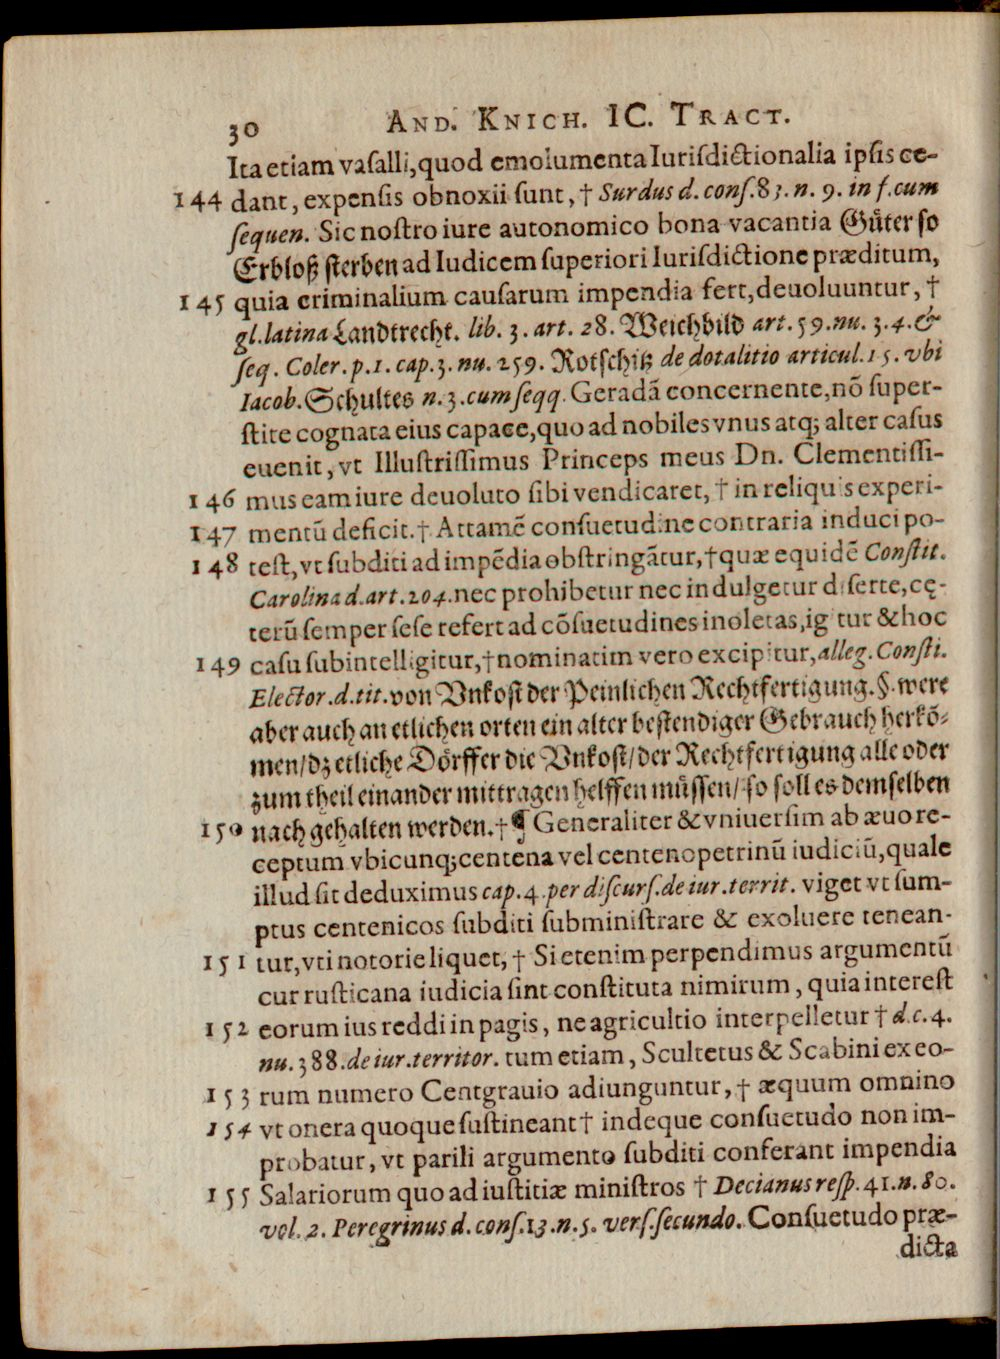 30 AND. KNICH. IC. TRACT.
Ita etiam vaſalli, quod emolumenta Iuriſdictionalia ipſis ce-
144 dant, expenſis obnoxii ſunt, † Surdus d. conſ. 83. n. 9. in f. cum
ſequen. Sic noſtro iure autonomico bona vacantia Guͤter ſo
Erbloß ſterben ad Iudicem ſuperiori Iuriſdictione præditum,
145 quia criminalium cauſarum impendia fert, deuoluuntur, †
gl. latina Landtrecht. lib. 3. art. 28. Weichbild art. 59. nu. 3. 4. &
ſeq. Coler. p. 1. cap. 3. nu. 259. Rotſchitz de dotalitio articul. 15. vbi
Iacob. Schultes n. 3. cum ſeqq. Geradā concernente, nō ſuper-
ſtite cognata eius capace, quo ad nobiles vnus atq; alter caſus
euenit, vt Illuſtriſſimus Princeps meus Dn. Clementiſſi-
146 mus eam iure deuoluto ſibi vendicaret, † in reliquis experi-
147 mentū deficit. † Attamē conſuetudine contraria induci po-
148 teſt, vt ſubditi ad impēdia obſtringātur, † quæ equidē Conſtit.
Carolina d. art. 204. nec prohibetur nec indulgetur diſerte, cę-
terū ſemper ſeſe refert ad cōſuetudines inoletas, igitur & hoc
149 caſu ſubintelligitur, † nominatim vero excipitur, alleg. Conſti.
Elector. d. tit. von Vnkoſt der Peinlichen Rechtfertigung. §. were
aber auch an etlichen orten ein alter beſtendiger Gebrauch herkō-
men/ dz etliche Doͤrffer die Vnkoſt/ der Rechtfertigung alle oder
zum theil einander mittragen helffen muͤſſen/ ſo ſoll es demſelben
150 nach gehalten werden. † ¶ Generaliter & vniuerſim ab æuo re-
ceptum vbicunq; centena vel centenopetrinū iudiciū, quale
illud ſit deduximus cap. 4. per diſcurſ. de iur. territ. viget vt ſum-
ptus centenicos ſubditi ſubminiſtrare & exoluere tenean-
151 tur, vti notorie liquet, † Si etenim perpendimus argumentū
cur ruſticana iudicia ſint conſtituta nimirum, quia intereſt
152 eorum ius reddi in pagis, ne agricultio interpelletur † d. c. 4.
nu. 388. de iur. territor. tum etiam, Scultetus & Scabini ex eo-
153 rum numero Centgrauio adiunguntur, † æquum omnino
154 vt onera quoque ſuſtineant † indeque conſuetudo non im-
probatur, vt parili argumento ſubditi conferant impendia
155 Salariorum quo ad iuſtitiæ miniſtros † Decianus reſp. 41. n. 80.
vol. 2. Peregrinus d. conſ. 13. n. 5. verſ. ſecundo. Conſuetudo præ-
dicta